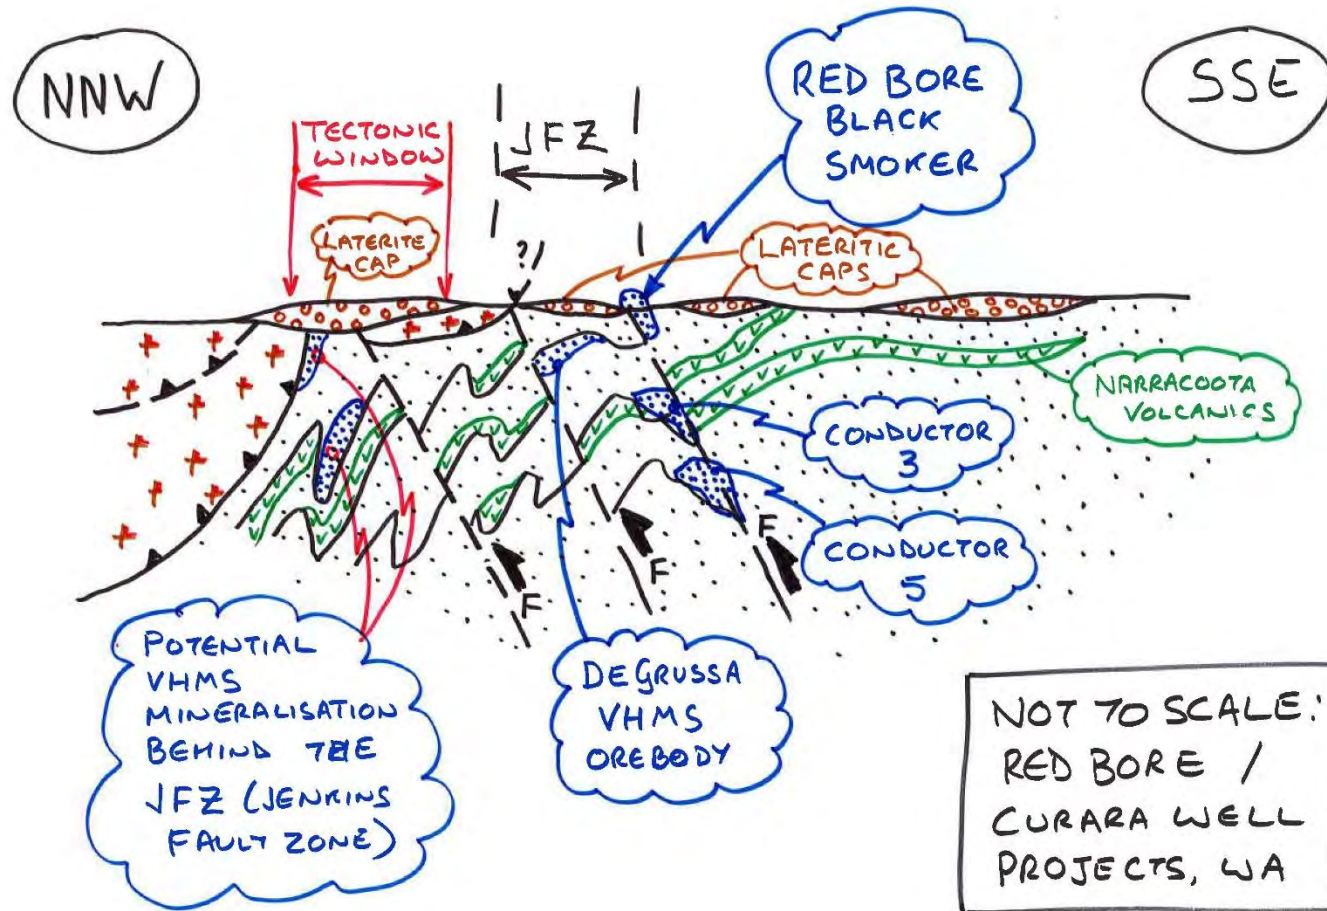 NNW
SSE
TECTONIC
WINDOW
JFZ
RED BORE
BLACK
SMOKER
LATERITE
CAP
?
LATERITIC
CAPS
NARRACOOTA
VOLCANICS
CONDUCTOR
3
CONDUCTOR
5
F
F
F
POTENTIAL
VHMS
MINERALISATION
BEHIND THE
JFZ (JENKINS
FAULT ZONE)
DEGRUSSA
VHMS
OREBODY
NOT TO SCALE:
RED BORE /
CURARA WELL
PROJECTS, WA